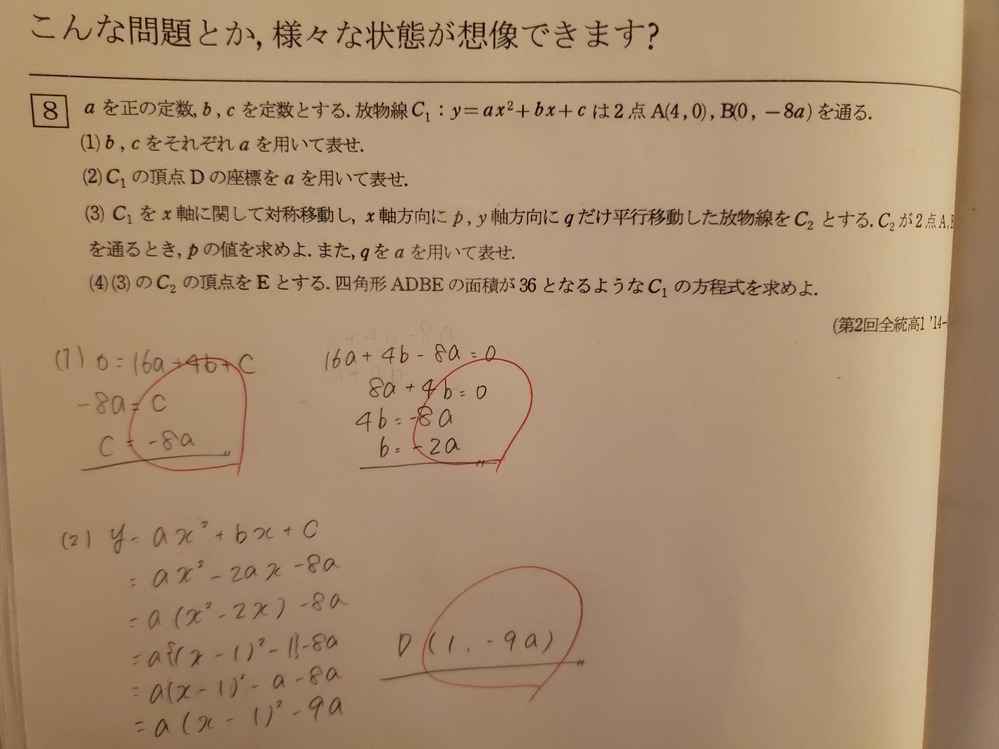 こんな問題とか, 様々な状態が想像できます?
8 aを正の定数, b, cを定数とする. 放物線C₁ : y=ax²+bx+cは2点A(4, 0), B(0, −8a)を通る.
(1) b, cをそれぞれaを用いて表せ.
(2) C₁の頂点Dの座標をaを用いて表せ.
(3) C₁をx軸に関して対称移動し, x軸方向にp, y軸方向にqだけ平行移動した放物線をC₂とする. C₂が2点A, B
を通るとき, pの値を求めよ. また, qをaを用いて表せ.
(4) (3)のC₂の頂点をEとする. 四角形ADBEの面積が36となるようなC₁の方程式を求めよ.
(第2回全統高1 '14-
(1) 0=16a+4b+C
-8a=C
C=-8a
16a+4b-8a=0
8a+4b=0
4b=-8a
b=-2a
(2) y=ax²+bx+C
=ax²-2ax-8a
=a(x²-2x)-8a
=a{(x-1)²-1}-8a
=a(x-1)²-a-8a
=a(x-1)²-9a
D(1, -9a)